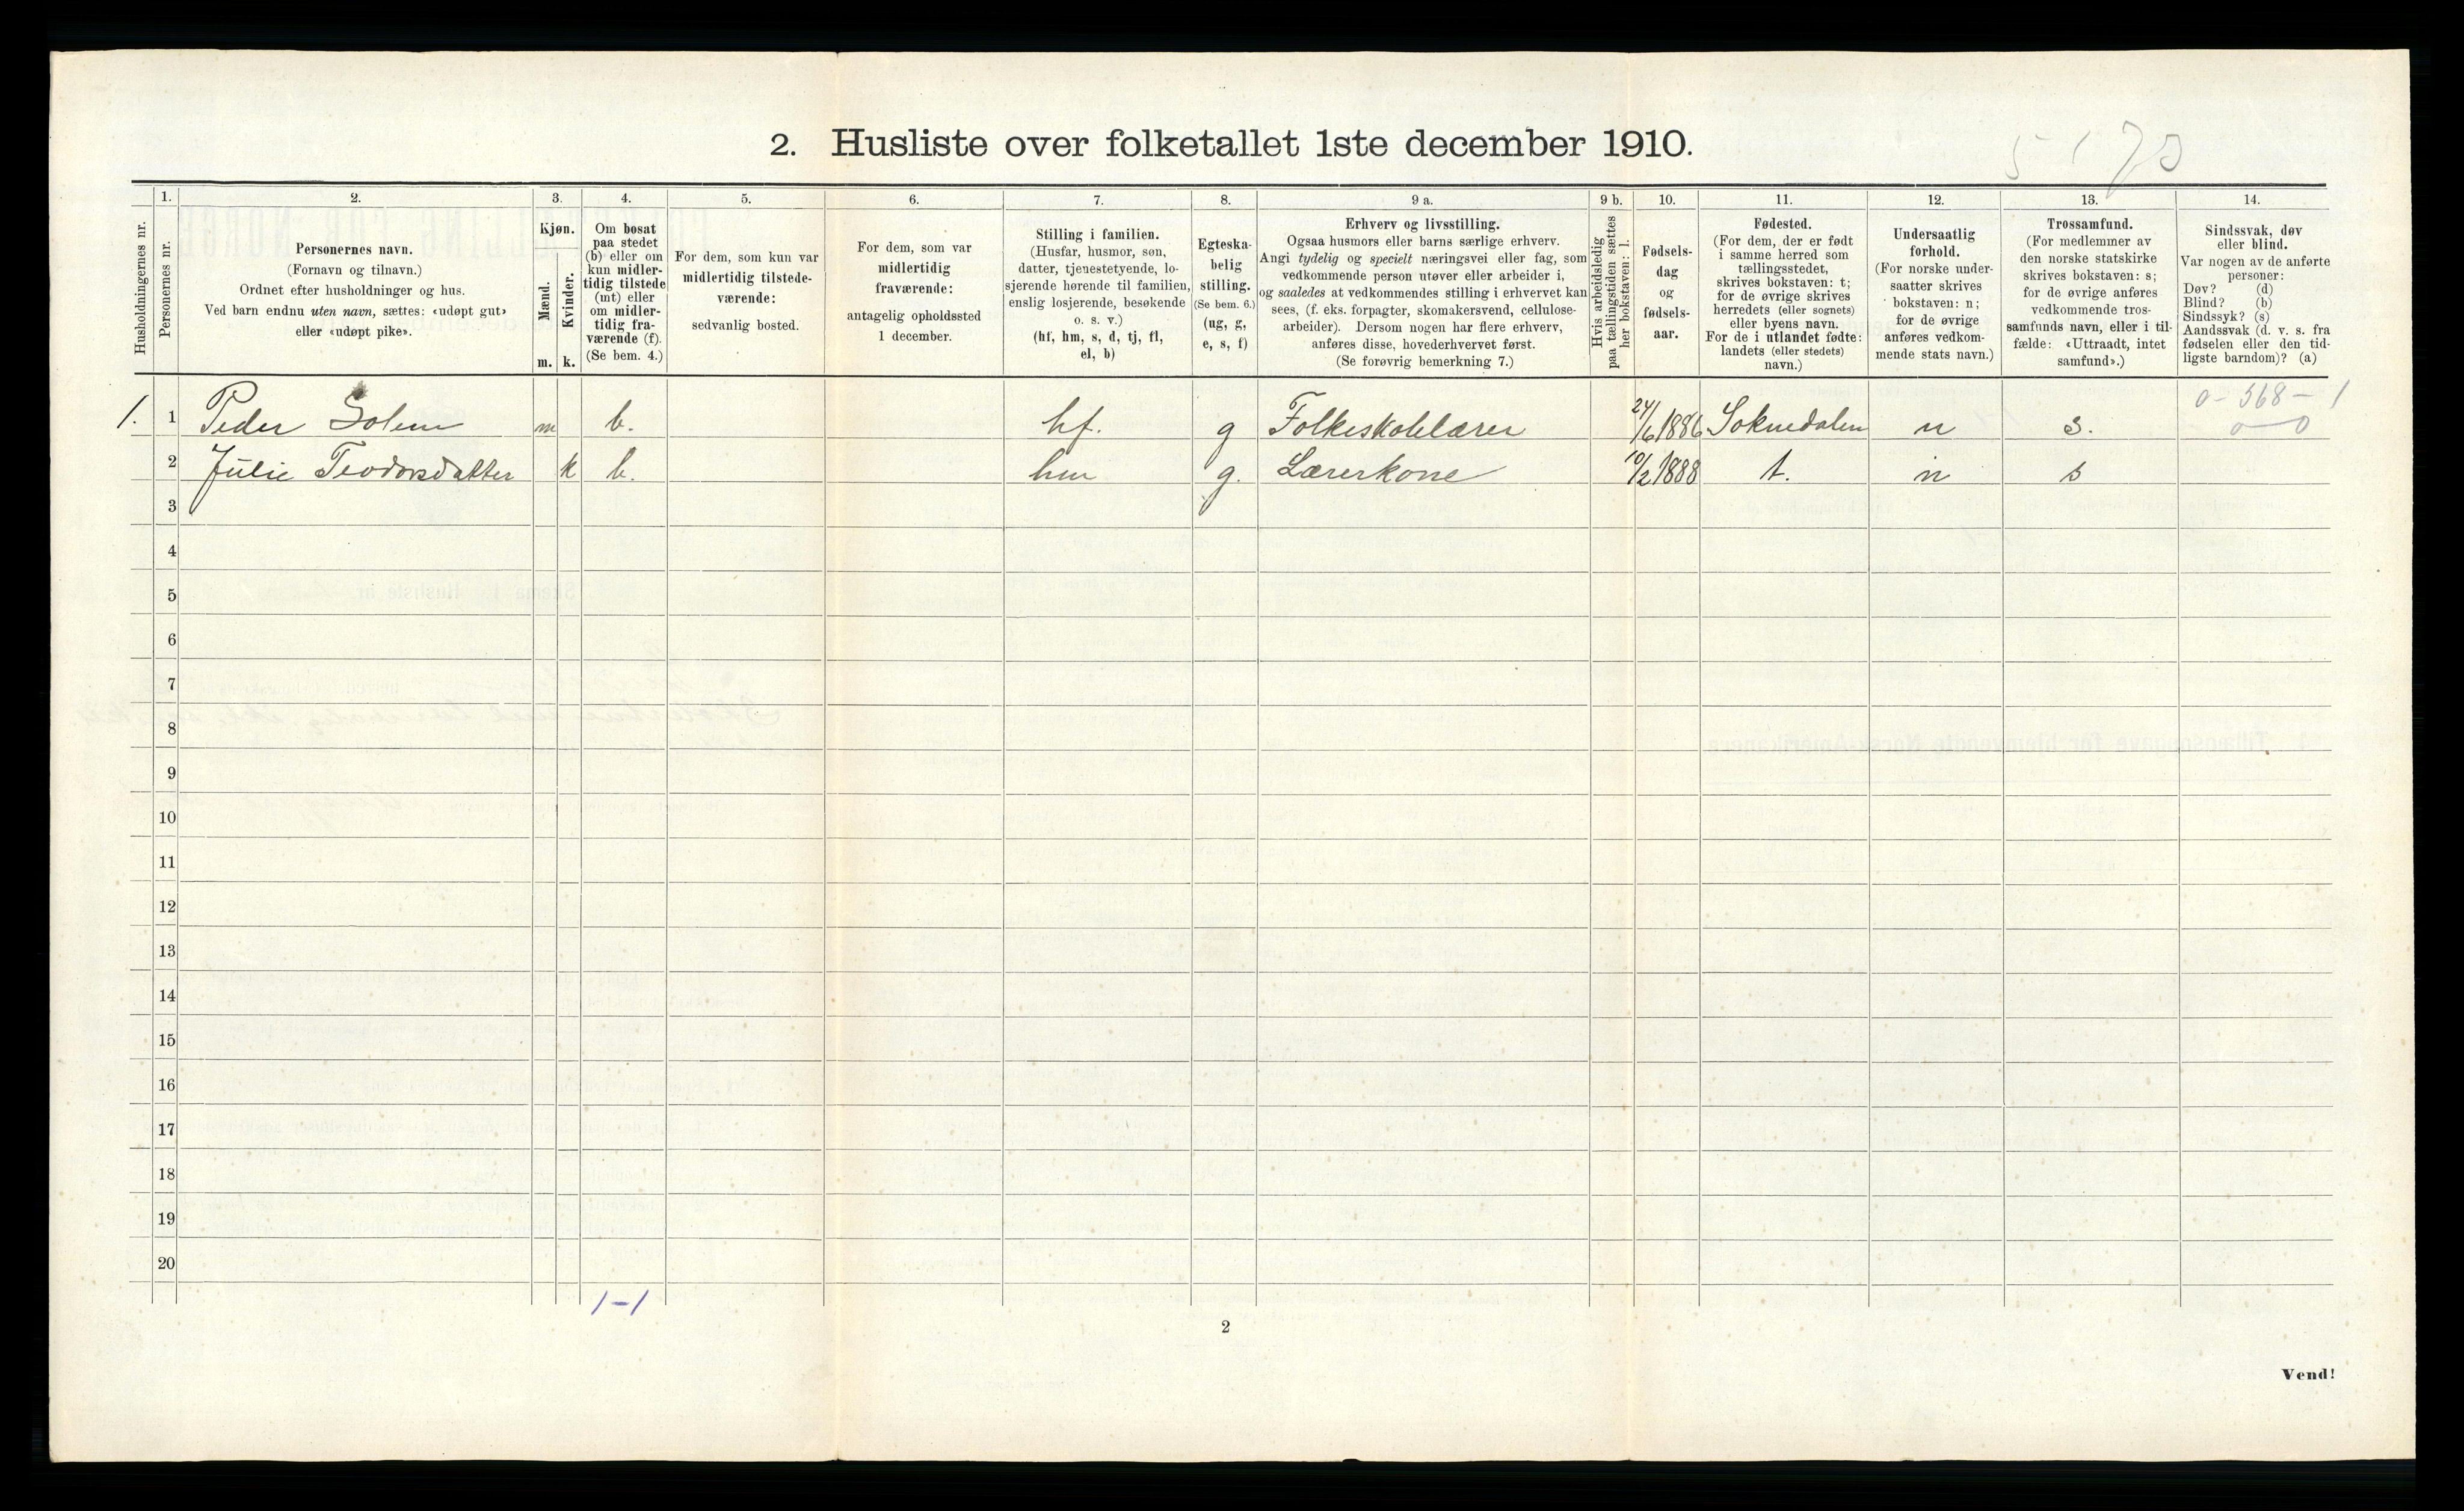 2. Husliste over folketallet 1ste december 1910.
5 1 70
Husholdningernes nr.
1.
Personernes nr.
2.
Personernes navn.
(Fornavn og tilnavn.)
Ordnet efter husholdninger og hus.
Ved barn endnu uten navn, sættes: «udøpt gut»
eller «udøpt pike».
3.
Kjøn.
Mænd.
Kvinder.
m. k.
4.
Om bosat
paa stedet
(b) eller om
kun midler-
tidig tilstede
(mt) eller
om midler-
tidig fra-
værende (f).
(Se bem. 4.)
5.
For dem, som kun var
midlertidig tilstede-
værende:
sedvanlig bosted.
6.
For dem, som var
midlertidig
fraværende:
antagelig opholdssted
1 december.
7.
Stilling i familien.
(Husfar, husmor, søn,
datter, tjenestetyende, lo-
sjerende hørende til familien,
enslig losjerende, besøkende
o. s. v.)
(hf, hm, s, d, tj, fl,
el, b)
8.
Egteska-
belig
stilling.
(Se bem. 6.)
(ug, g,
e, s, f)
9 a.
Erhverv og livsstilling.
Ogsaa husmors eller barns særlige erhverv.
Angi tydelig og specielt næringsvei eller fag, som
vedkommende person utøver eller arbeider i,
og saaledes at vedkommendes stilling i erhvervet kan
sees, (f. eks. forpagter, skomakersvend, cellulose-
arbeider). Dersom nogen har flere erhverv,
anføres disse, hovederhvervet først.
(Se forøvrig bemerkning 7.)
9 b.
Hvis arbeidsledig
paa tællingstiden sættes
her bokstaven: l.
10.
Fødsels-
dag
og
fødsels-
aar.
11.
Fødested.
(For dem, der er født
i samme herred som
tællingsstedet,
skrives bokstaven: t;
for de øvrige skrives
herredets (eller sognets)
eller byens navn.
For de i utlandet fødte:
landets (eller stedets)
navn.)
12.
Undersaatlig
forhold.
(For norske under-
saatter skrives
bokstaven: n;
for de øvrige
anføres vedkom-
mende stats navn.)
13.
Trossamfund.
(For medlemmer av
den norske statskirke
skrives bokstaven: s;
for de øvrige anføres
vedkommende tros-
samfunds navn, eller i til-
fælde: «Uttraadt, intet
samfund».)
14.
Sindssvak, døv
eller blind.
Var nogen av de anførte
personer:
Døv? (d)
Blind? (b)
Sindssyk? (s)
Aandssvak (d. v. s. fra
fødselen eller den tid-
ligste barndom)? (a)
0-568-1
1. 1 Peder Solem m b. hf. g Folkeskolelærer 24/6 1886 Soknedalen n s. 0 0
2 Julie Teodorsdatter k b. hm g. Lærerkone 10/2 1888 t. n s
3
4
5
6
7
8
9
10
11
12
13
14
15
16
17
18
19
20
1-1
2
Vend!